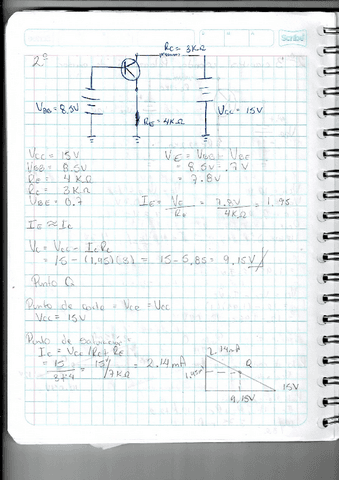 Scribe
2º
RC = 3KΩ
VBB = 8.5V
VCC = 15V
RE = 4KΩ
VCC = 15V
VBB = 8.5V
RE = 4KΩ
RC = 3KΩ
VBE = 0.7
IE ≈ IC
VE = VBB - VBE
= 8.5V - .7V
= 7.8V
IE = VE/RE = 7.8V/4KΩ = 1.95
VC = VCC - ICRC
= 15 - (1.95)(3) = 15 - 5.85 = 9.15V
Punto Q
Punto de corte = VCE = VCC
VCC = 15V
Punto de saturación
IC = VCC/RC+RE
= 15/3+4 = 15/7KΩ = 2.14mA
2.14mA
Q
15V